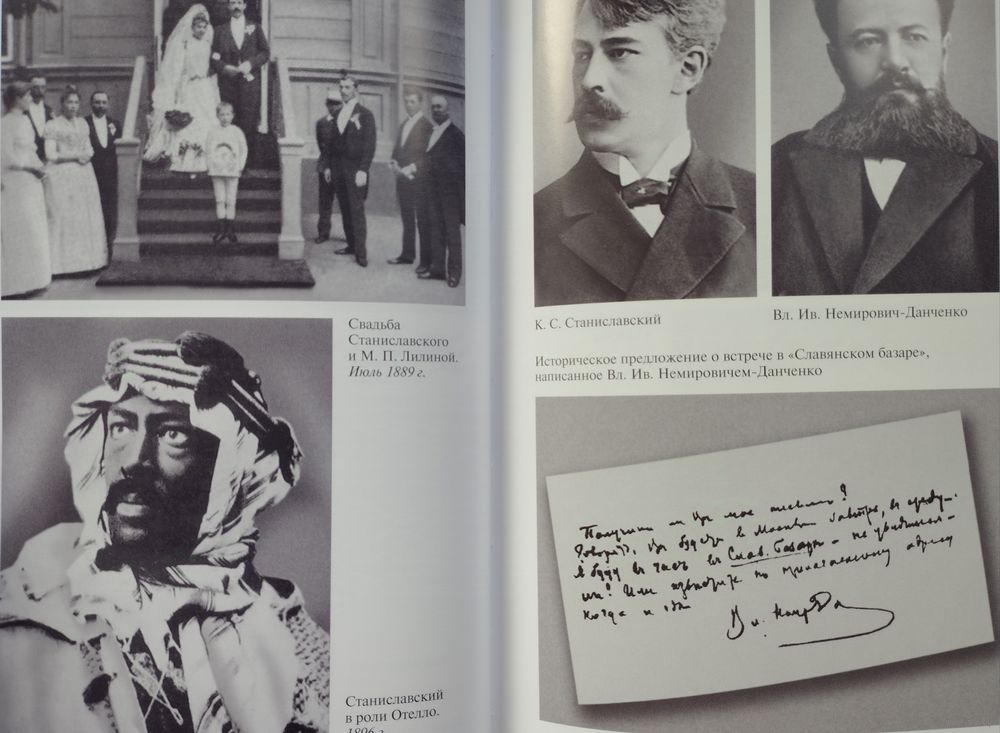 Свадьба
Станиславского
и М. П. Лилиной.
Июль 1889 г.
Станиславский
в роли Отелло.
1896 г.
К. С. Станиславский
Вл. Ив. Немирович-Данченко
Историческое предложение о встрече в «Славянском базаре»,
написанное Вл. Ив. Немировичем-Данченко
Получили ли Вы мое письмо?
Говорят, Вы будете в Москве завтра, в среду.
Я буду в час въ Слав. Базарѣ – не увидимся-
ли? Или известите по прилагаемому адресу
когда и где